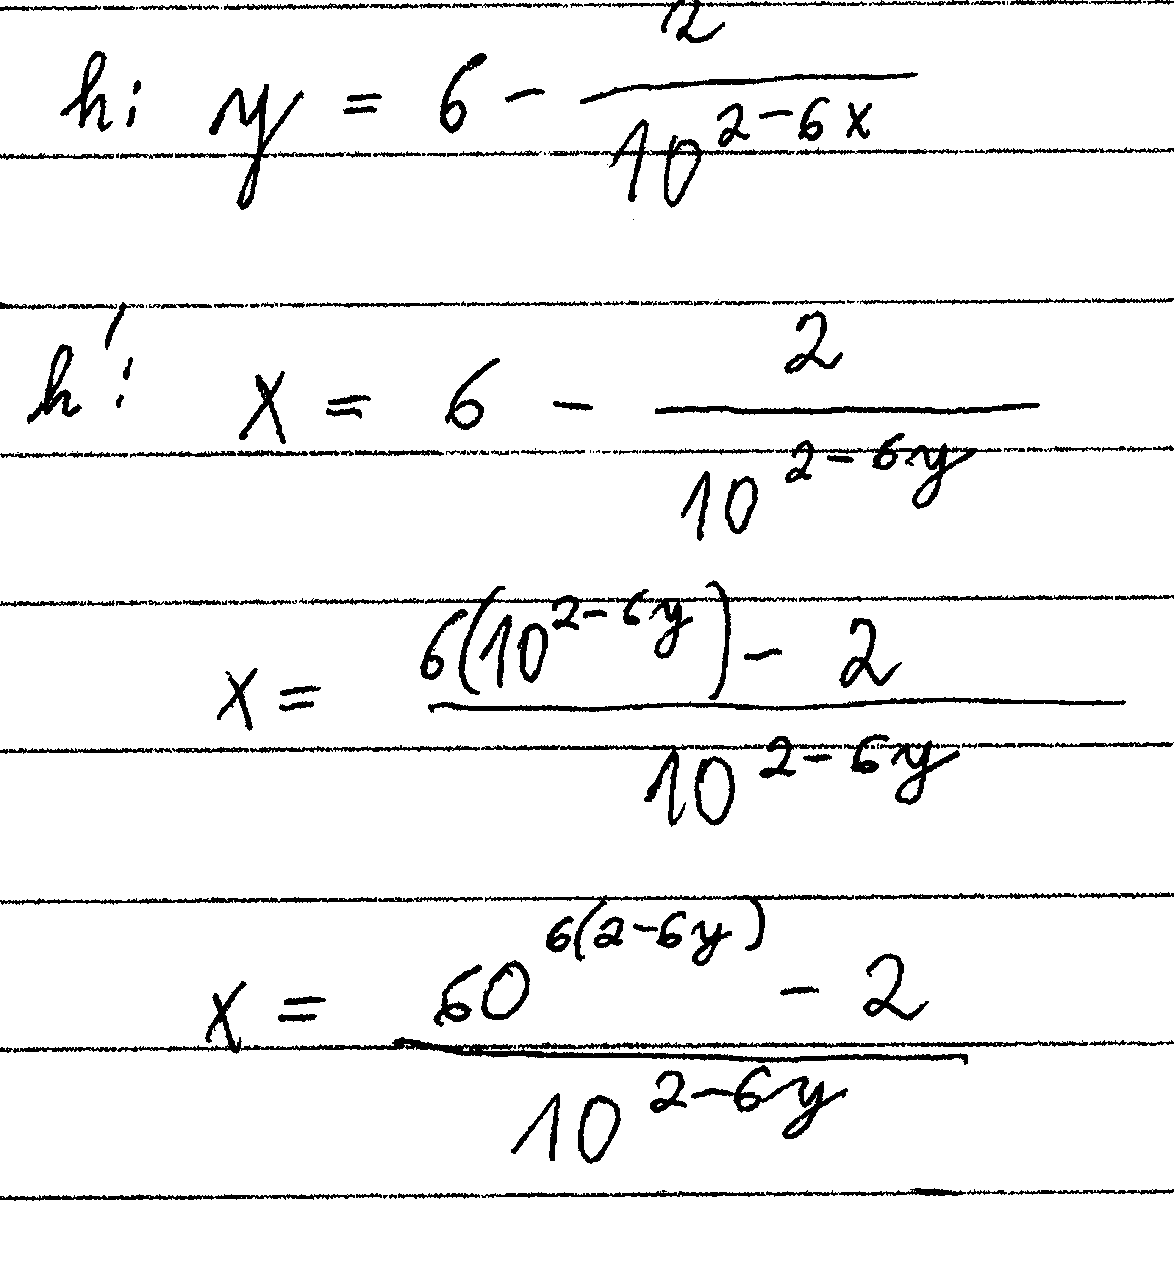 h: y = 6 - \frac{2}{10^{2-6x}}
h': x = 6 - \frac{2}{10^{2-6y}}
x = \frac{6(10^{2-6y}) - 2}{10^{2-6y}}
x = \frac{60^{6(2-6y)} - 2}{10^{2-6y}}